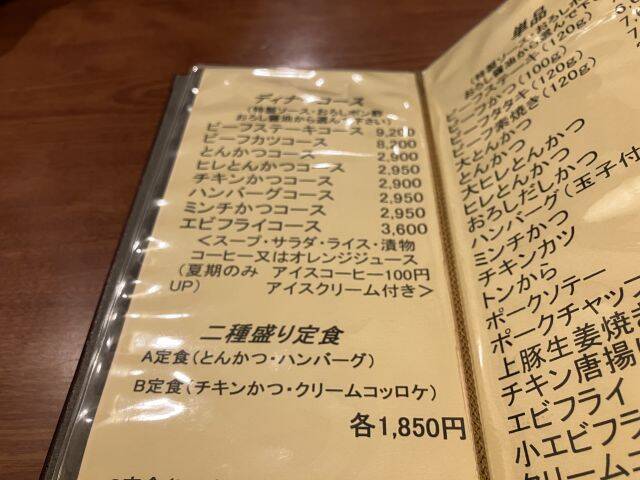 ディナーコース
(特製ソース・おろしポン酢
おろし醤油から選んで下さい)
ビーフステーキコース 9,200
ビーフカツコース 8,700
とんかつコース 2,900
ヒレとんかつコース 2,950
チキンかつコース 2,900
ハンバーグコース 2,950
ミンチかつコース 2,950
エビフライコース 3,600
<スープ・サラダ・ライス・漬物
コーヒー又はオレンジジュース
(夏期のみ アイスコーヒー100円
UP) アイスクリーム付き>
二種盛り定食
A定食(とんかつ・ハンバーグ)
B定食(チキンかつ・クリームコッロケ)
各1,850円
単品
(特製ソース・おろしポン
おろし醤油から選んで下
ビーフステーキ(120g)
ビーフかつ(100g)
ビーフタタキ(120g)
ビーフ素焼き(120g)
大とんかつ
大ヒレとんかつ
ヒレとんかつ
おろしだしかつ
ハンバーグ(玉子付
ミンチかつ
チキンカツ
トンから
ポークソテー
ポークチャップ
上豚生姜焼き
チキン唐揚げ
エビフライ
小エビフライ
クリームコ